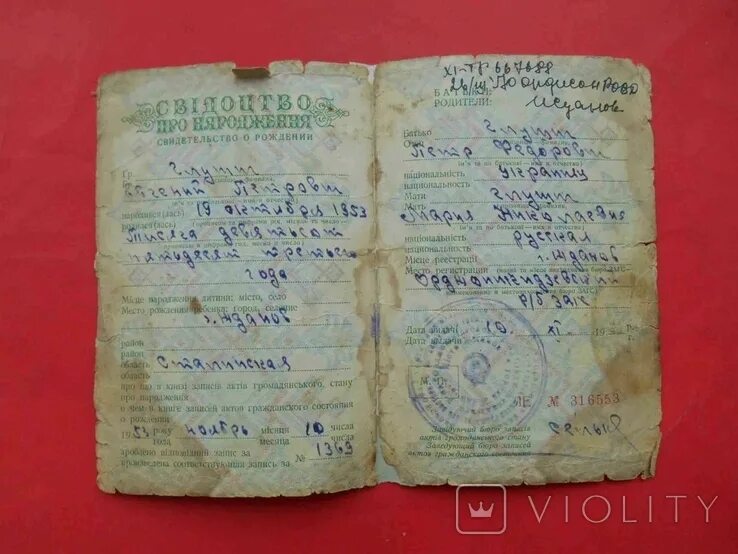 СВІДОЦТВО
ПРО НАРОДЖЕННЯ
СВИДЕТЕЛЬСТВО О РОЖДЕНИИ
Гр.
Евгений Петрович
народився(лась) 19 октября 1953
Тысяча девятьсот
пятьдесят третьего
года
Місце народження дитини: місто, село
Место рождения ребенка: город, селение
г. Жданов
район
район
область Сталинская
область
про що в книзі записів актів громадянського стану
про народження
о чем в книге записей актов гражданского состояния
о рождении
1953 року ноябрь місяця 10 числа
года месяца числа
зроблено відповідний запис за № 1369
произведена соответствующая запись за
667688
26/III
Жданов
БАТЬКИ:
РОДИТЕЛИ:
Батько
Отец
Петр Федорович
(ім'я та по батькові — имя и отчество)
національність украинец
национальность
Мати
Мать
Мария Николаевна
(ім'я та по батькові — имя и отчество)
національність русская
национальность
Місце реєстрації г. Жданов
Место регистрации
Орджоникидзевский
р/б загс
Дата видачі 10 XI
Дата выдачи
М. П.
№ 316553
Завідуючий бюро записів
актів громадянського стану
Заведующий бюро записей
актов гражданского состояния
VIOLITY